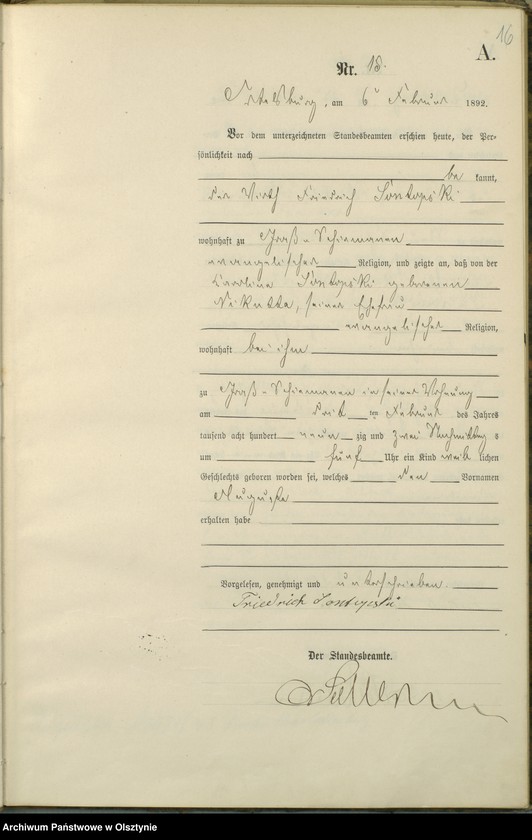 16
A.
Nr. 18.
Ortelsburg, am 6ten Februar 1892.
Vor dem unterzeichneten Standesbeamten erschien heute, der Per-
sönlichkeit nach
be kannt,
der Wirth Friedrich
wohnhaft zu Groß-Schiemanen
evangelischer Religion, und zeigte an, daß von der
Karoline geborenen
Nikutta, seiner Ehefrau
evangelischer Religion,
wohnhaft bei ihm
zu Groß-Schiemanen in seiner Wohnung
am dritten Februar des Jahres
tausend acht hundert neunzig und zwei Nachmittags
um fünf Uhr ein Kind weiblichen
Geschlechts geboren worden sei, welches den Vornamen
Auguste
erhalten habe
Vorgelesen, genehmigt und unterschrieben.
Friedrich
Der Standesbeamte.
Archiwum Państwowe w Olsztynie